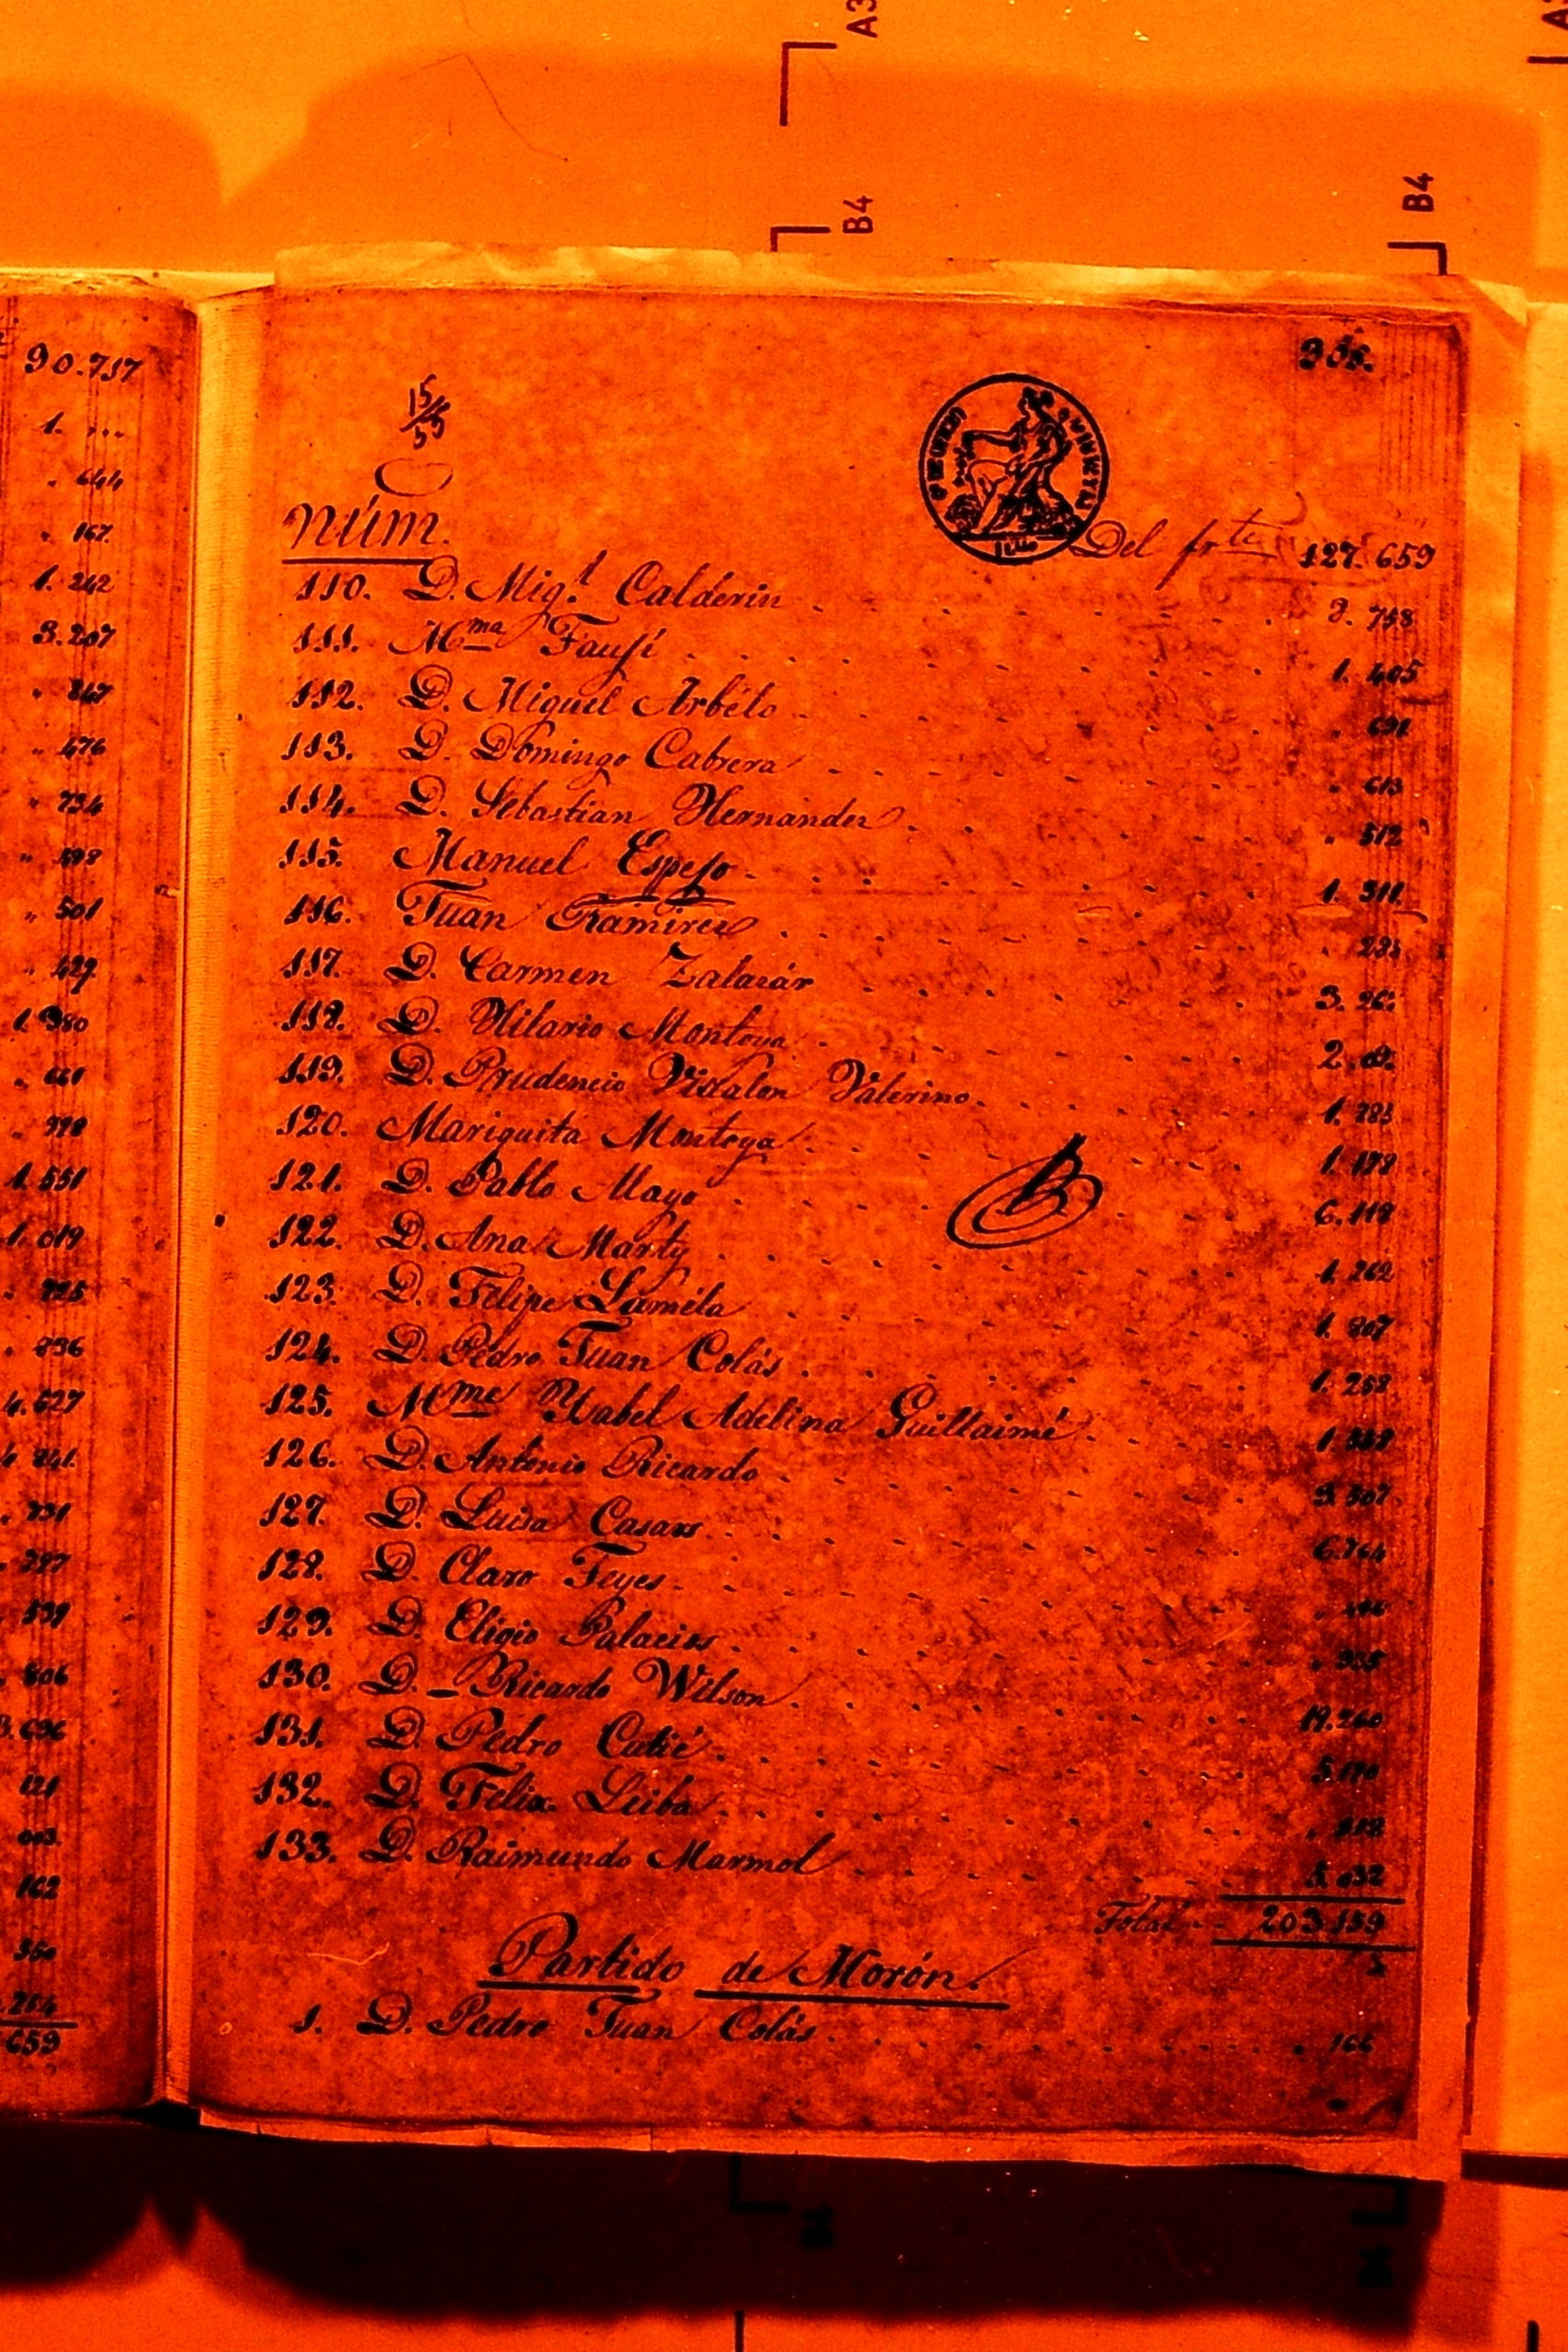 90.717
1. ...
" 644
" 167
1. 242
3.207
" 847
" 476
" 734
" 598
" 501
" 429
1.380
" 661
" 998
1.551
1.019
836
4.627
731
539
806
121
003.
162
560
659
A3
B4
B4
15
55
Núm.
Del frte 127.659
110. D. Migl. Calderin 758
111. Mma 1.405
112. D. Miguel Arbélo " 691
113. D. Domingo Cabrera " 613
114. D. Sebastian Hernandez " 512
115. Manuel Espejo 1. 311
116. Juan Ramirez
117. D. Carmen Zalazár
118. D. Hilario Montoya
119. D. Prudencio Vidalon Valerino
120. Mariquita Montoya
121. D. Pablo Mayo 6.118
122. D. Ana Marty 1.262
123. D. Felipe Laméla 1. 807
124. D. Pedro Juan Colás 1. 258
125. Mme Ysabel Adelina Guillaimé
126. D. Antonio Ricardo
127. D. Luisa Casars 6.764
128. D. Claro Feyes
129. D. Eligio Palacios
130. D. Ricardo Wilson 19.260
131. D. Pedro Cutié 5.170
132. D. Felix Leiba
133. D. Raimundo Marmol 5.032
Total 203.159
Partido de Morón.
1. D. Pedro Juan Colás " 166